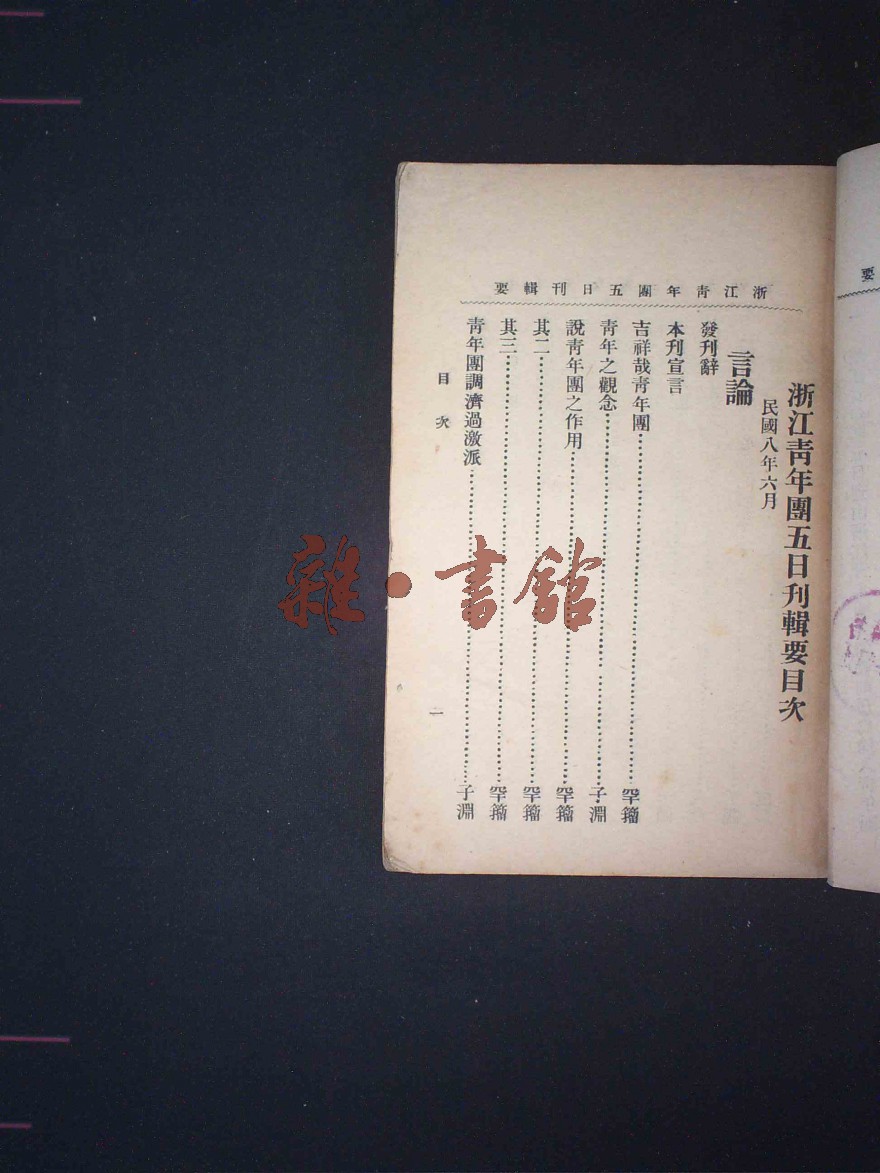 浙江靑年團五日刊輯要
浙江靑年團五日刊輯要目次
民國八年六月
言論
發刊辭
本刊宣言
吉祥哉靑年團……罕籀
靑年之觀念……子淵
說靑年團之作用……罕籀
其二……罕籀
其三……罕籀
靑年團調濟過激派……子淵
目次
一
要
雜·書館